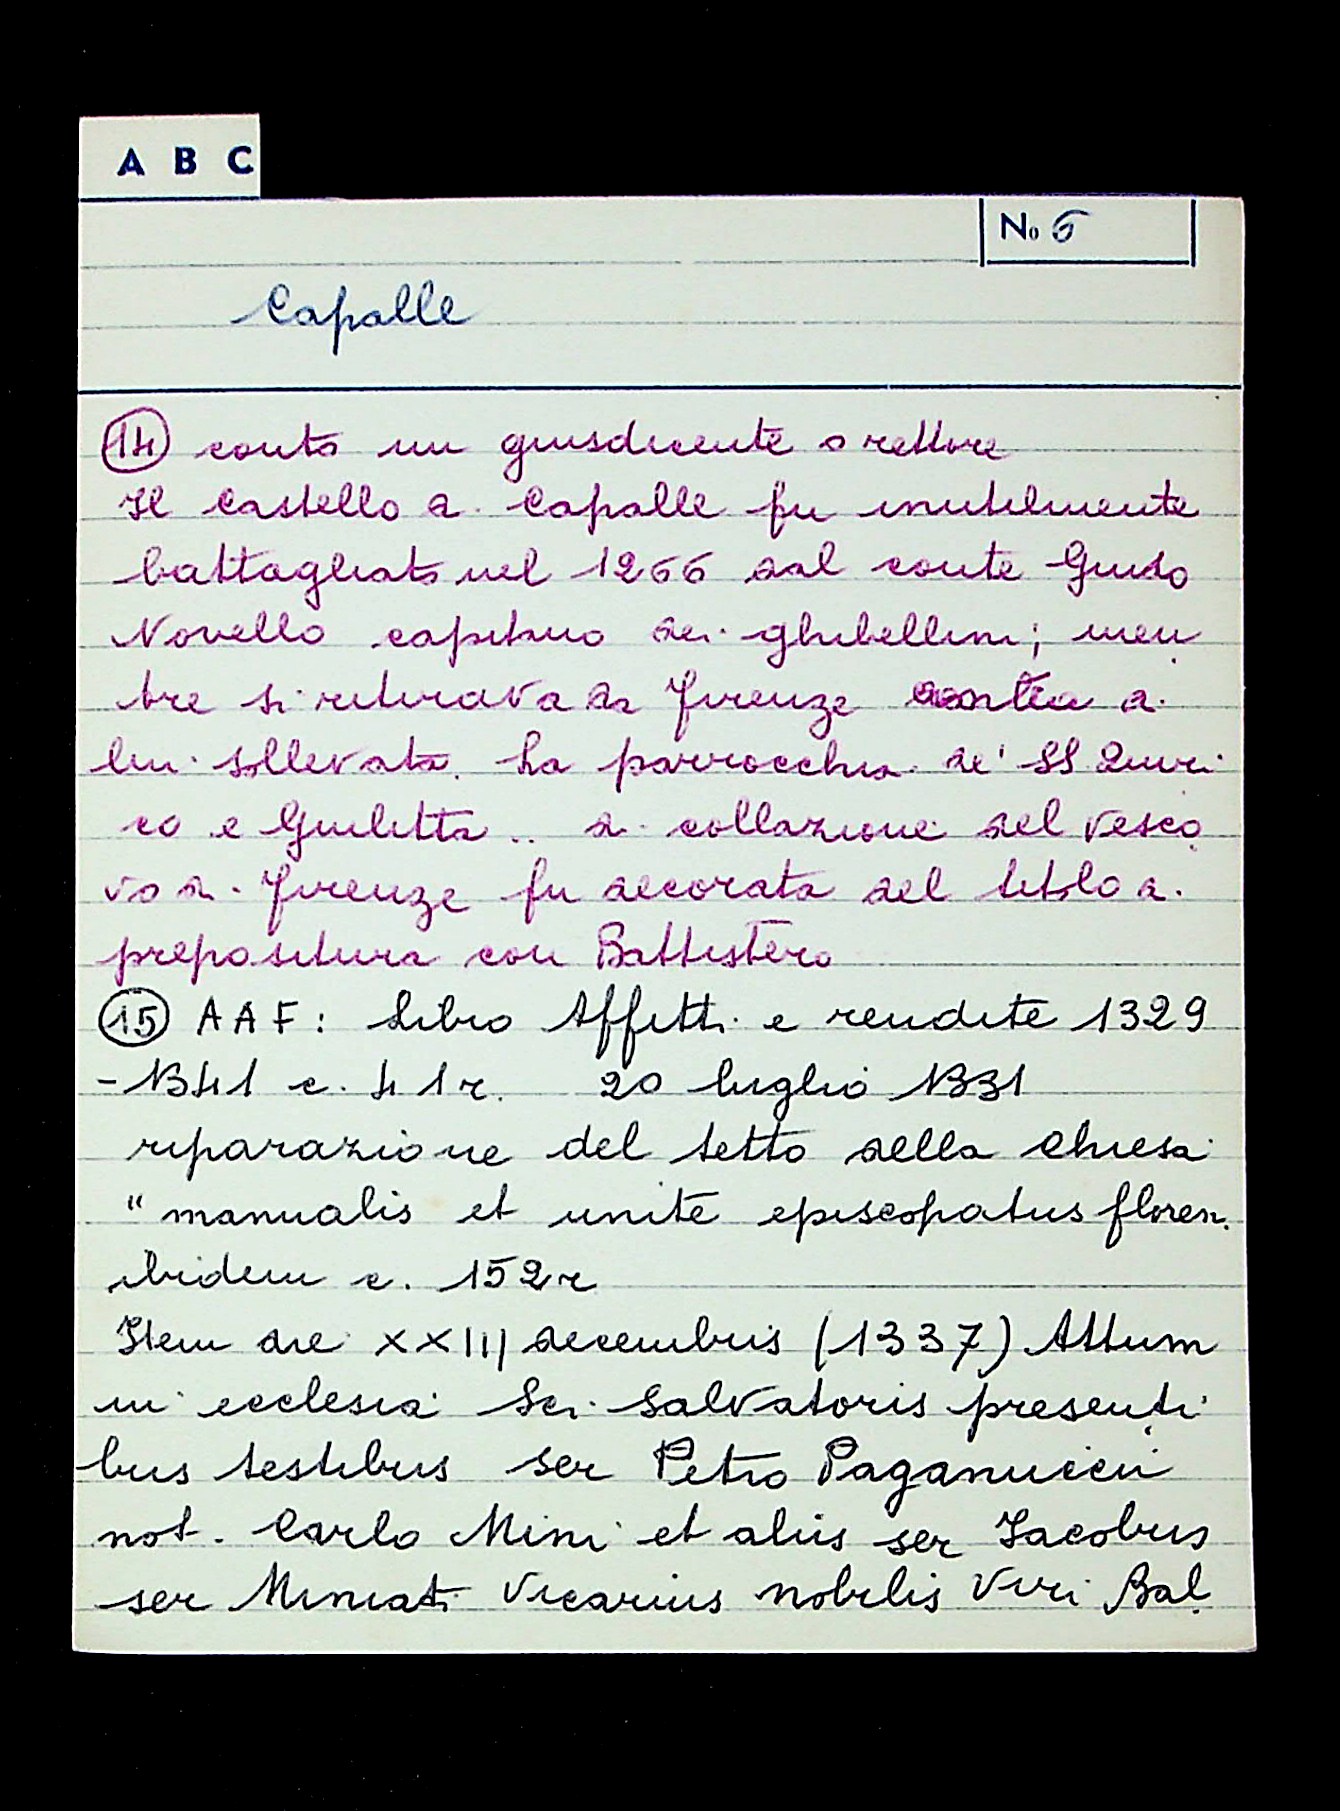 A B C
No 6
Capalle
14 conto un giusdicente o rettore
Il Castello di Capalle fu inutilmente
battagliato nel 1266 dal conte Guido
Novello capitano dei ghibellini; men
tre si retirava da Firenze contra di
lui sollevata. La parrocchia de' SS Quiri
co e Giulitta .. di collazione del vesco
vo di Firenze fu decorata del titolo di
prepositura con Battistero
15 AAF: Libro Affitti e rendite 1329
-1341 c. 41r. 20 luglio 1331
riparazione del tetto della Chiesa
"manualis et unite episcopatus floren.
ibidem c. 152r
Item die XXIII decembris (1337) Attum
in ecclesia Sci. Salvatoris presenti
bus testibus ser Petro Paganucci
not. Carlo Mini et aliis ser Iacobus
ser Miniati Vicarius nobilis Viri Bal